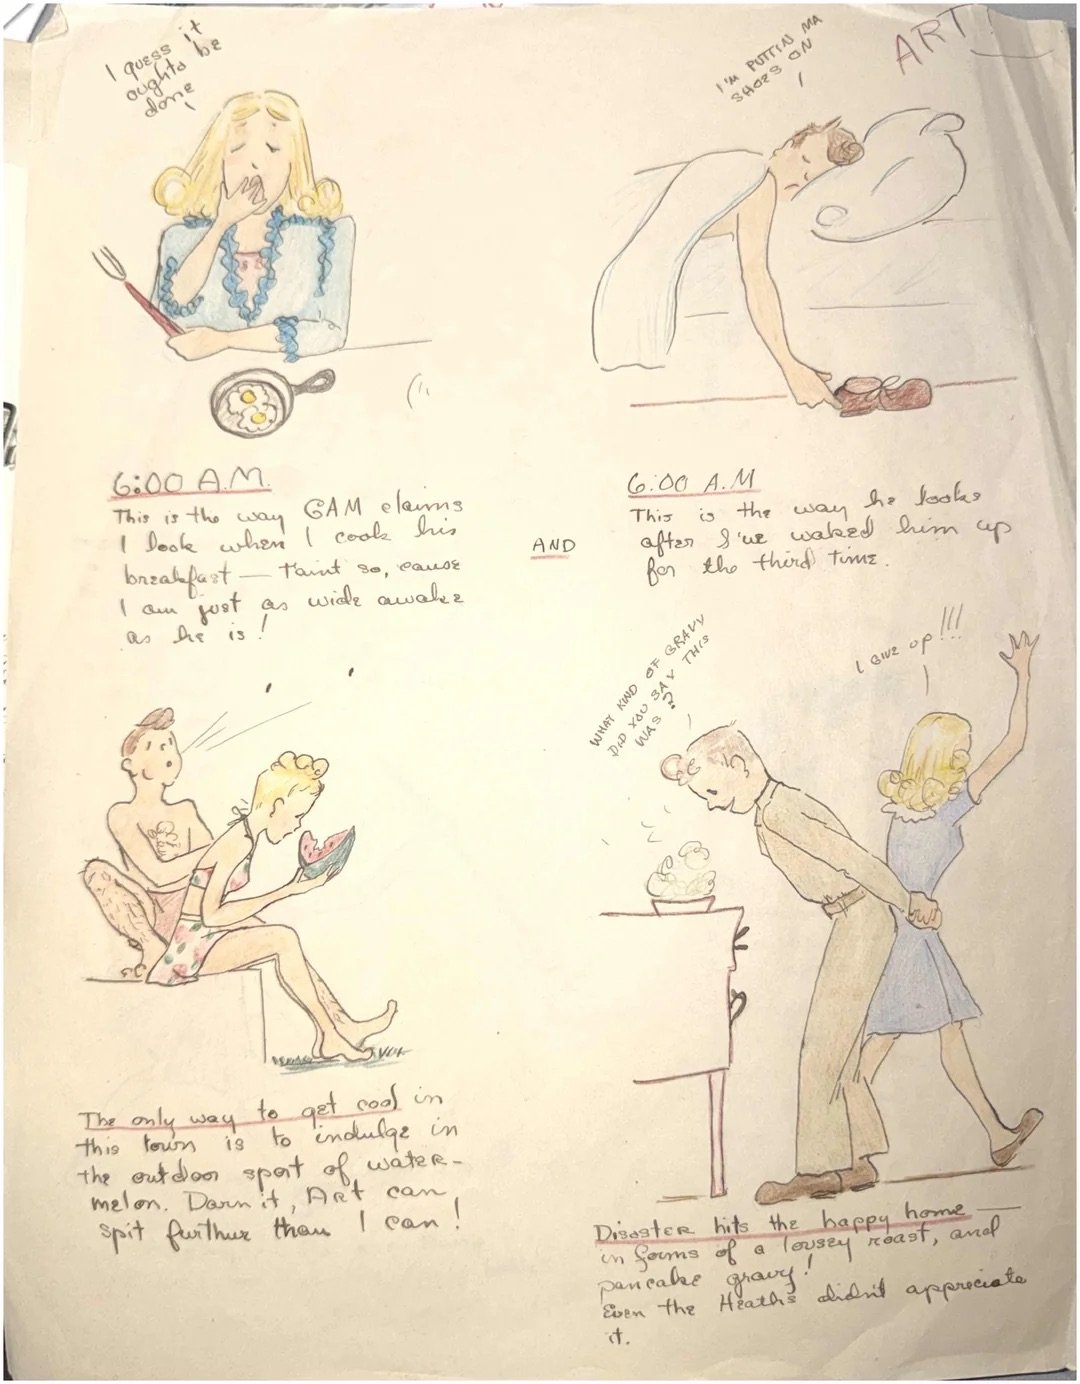 ART
I guess it
oughta be
done
I'M PUTTIN MA
SHOES ON
6:00 A.M.
This is the way GAM claims
I look when I cook his
breakfast — taint so, cause
I am just as wide awake
as he is!
AND
6:00 A.M
This is the way he looks
after I've waked him up
for the third time.
WHAT KIND OF GRAVY
DID YOU SAY THIS
WAS?
I GIVE UP!!!
The only way to get cool in
this town is to indulge in
the outdoor sport of water-
melon. Darn it, ART can
spit furthur than I can!
Disaster hits the happy home —
in forms of a lousey roast, and
pancake gravy!
Even the Heaths didn't appreciate
it.